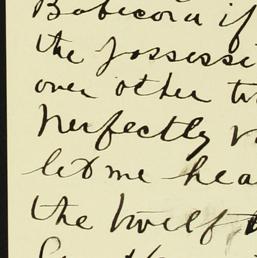 Babicora if
the possessi
over other tw
Perfectly
let me hea
the twelfth